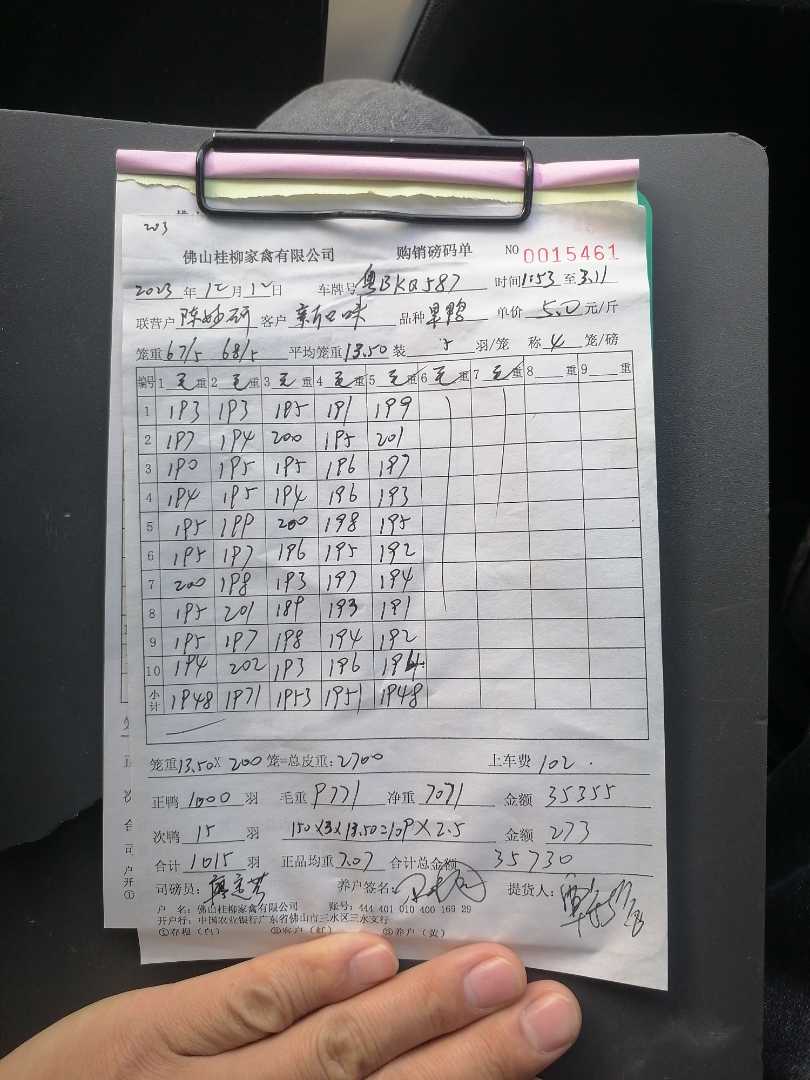 203
佛山桂柳家禽有限公司 购销磅码单 NO 0015461
2023 年 12 月 12 日 车牌号 粤BKQ587 时间 1:53 至 3:11
联营户 陈妙研 客户 新口味 品种 单价 5.0 元/斤
笼重 67/5 68/5 平均笼重 13.50 装 5 羽/笼 称 4 笼/磅
编号 1 毛 重 2 毛 重 3 毛 重 4 毛 重 5 毛 重 6 毛 重 7 毛 重 8 重 9 重
1 193 193 195 191 199
2 197 194 200 195 201
3 190 195 195 196 197
4 194 195 194 196 193
5 195 199 200 198 195
6 195 197 196 195 192
7 200 198 193 197 194
8 195 201 189 193 191
9 195 197 198 194 192
10 194 202 193 196 194
小计 1948 1971 1953 1951 1948
笼重 13.50 X 200 笼=总皮重: 2700 上车费 102.
正鸭 1000 羽 毛重 9771 净重 7071 金额 35355
次鸭 15 羽 150X3X13.50=109X2.5 金额 273
合计 1015 羽 正品均重 7.07 合计总金额 35730
司磅员: 养户签名: 提货人:
户 名: 佛山桂柳家禽有限公司 账号: 444 401 010 400 169 29
开户行: 中国农业银行广东省佛山市三水区三水支行
①存根(白) ②客户(红) ③养户(黄)